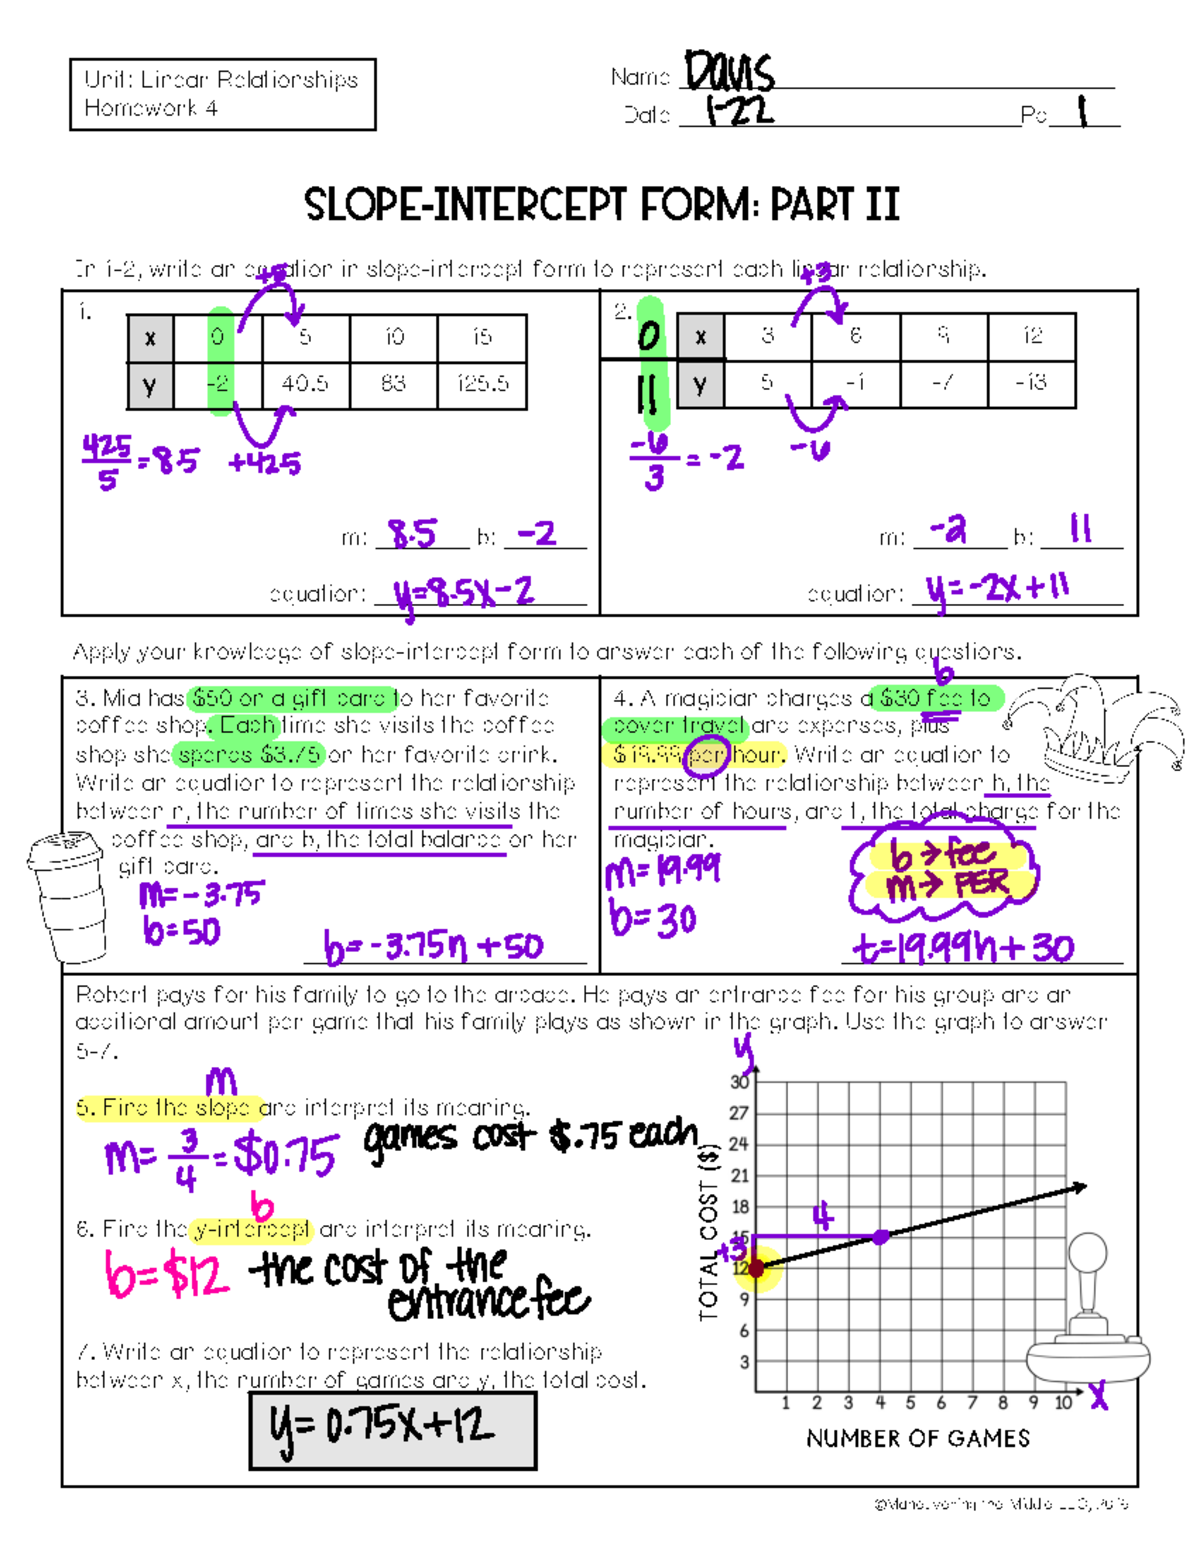 Unit: Linear Relationships
Homework 4
Name Davis
Date 1-22 Pd 1
SLOPE-INTERCEPT FORM: PART II
In 1-2, write an equation in slope-intercept form to represent each linear relationship.
1.
+5
x 0 5 10 15
y -2 40.5 83 125.5
425/5 = 8.5 +42.5
m: 8.5 b: -2
equation: y=8.5x-2
2.
+3
0 x 3 6 9 12
11 y 5 -1 -7 -13
-6/3 = -2 -6
m: -2 b: 11
equation: y=-2x+11
Apply your knowledge of slope-intercept form to answer each of the following questions.
3. Mia has $50 on a gift card to her favorite
coffee shop. Each time she visits the coffee
shop she spends $3.75 on her favorite drink.
Write an equation to represent the relationship
between n, the number of times she visits the
coffee shop, and b, the total balance on her
gift card.
m=-3.75
b=50
b=-3.75n+50
b
4. A magician charges a $30 fee to
cover travel and expenses, plus
$19.99 per hour. Write an equation to
represent the relationship between h, the
number of hours, and t, the total charge for the
magician.
m=19.99
b=30
b→fee
m→PER
t=19.99h+30
Robert pays for his family to go to the arcade. He pays an entrance fee for his group and an
additional amount per game that his family plays as shown in the graph. Use the graph to answer
5-7.
m
5. Find the slope and interpret its meaning.
m= 3/4 = $0.75 games cost $.75 each
b
6. Find the y-intercept and interpret its meaning.
b=$12 the cost of the
entrance fee
7. Write an equation to represent the relationship
between x, the number of games and y, the total cost.
y=0.75x+12
y
30
27
24
21
18
15
12
9
6
3
4
+3
TOTAL COST ($)
1 2 3 4 5 6 7 8 9 10 x
NUMBER OF GAMES
©Maneuvering the Middle LLC, 2015